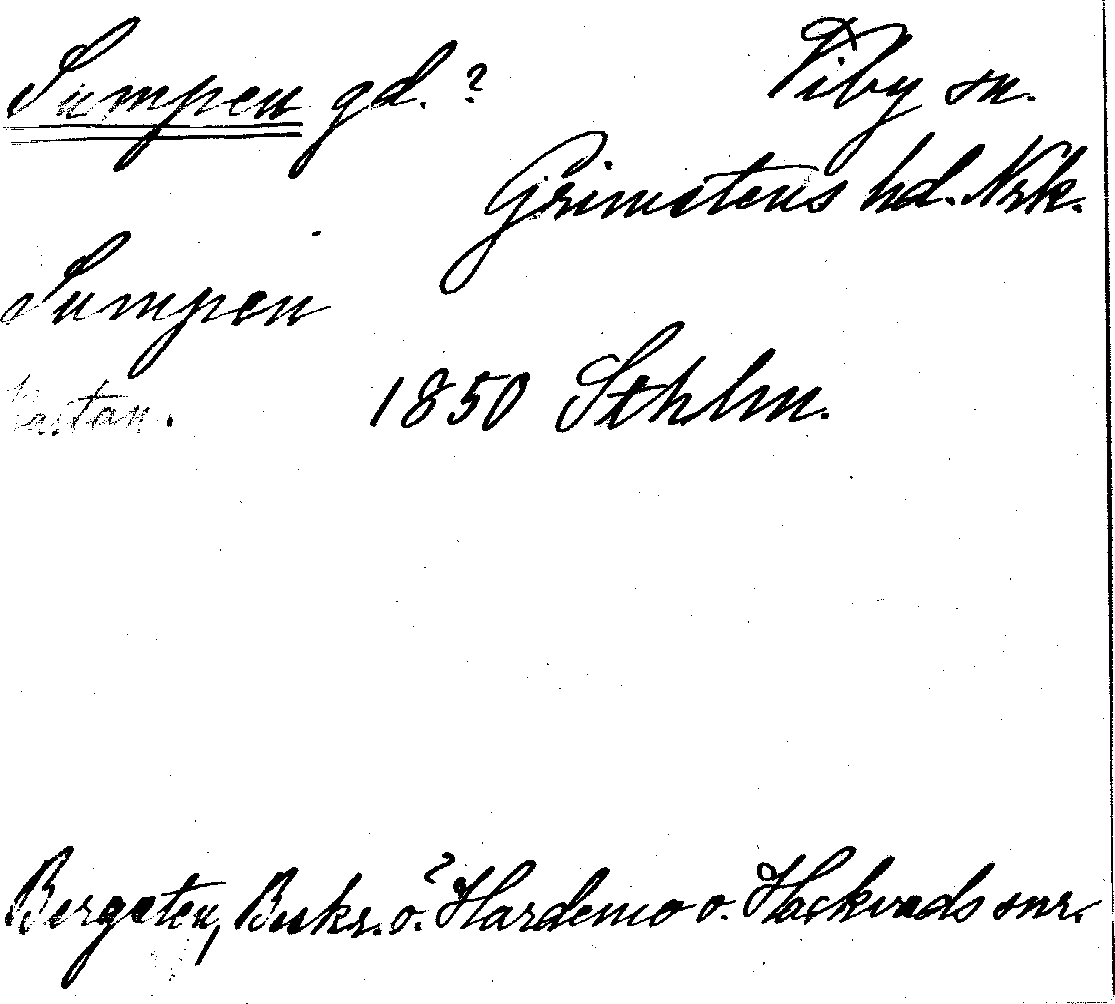 Sumpen gd. ? Viby sn.
Grimstens hd. Nrk.
Sumpen
Kartan. 1850 Sthlm.
Bergsten, Beskr. o.? Hardemo o. Hackvads snr.